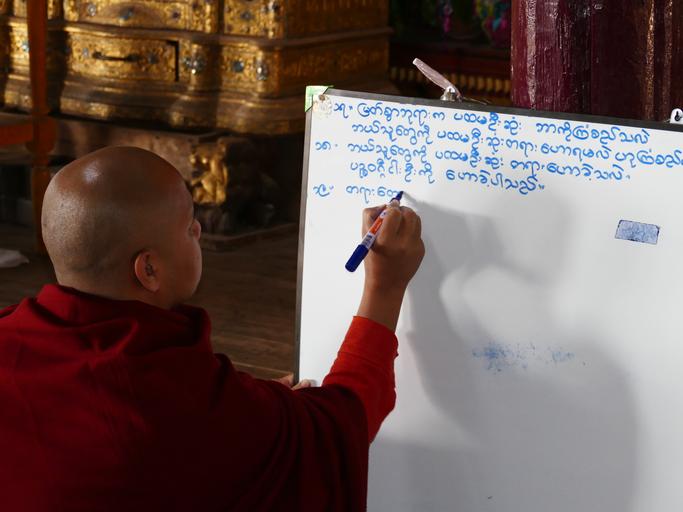 ၁၇။ မြတ်စွာဘုရား က ပထမဦးဆုံး ဘာကိုကြံစည်သလဲ
ဘယ်သူတွေကို ပထမဦးဆုံးတရားဟောရမလဲ ဟုကြံစည်
၁၈။ ဘယ်သူတွေကို ပထမဦးဆုံး တရားဟောခဲ့သလဲ။
ပဉ္စဝဂ္ဂီငါးဦးကို ဟောခဲ့ပါသည်။
၁၉။ တရား